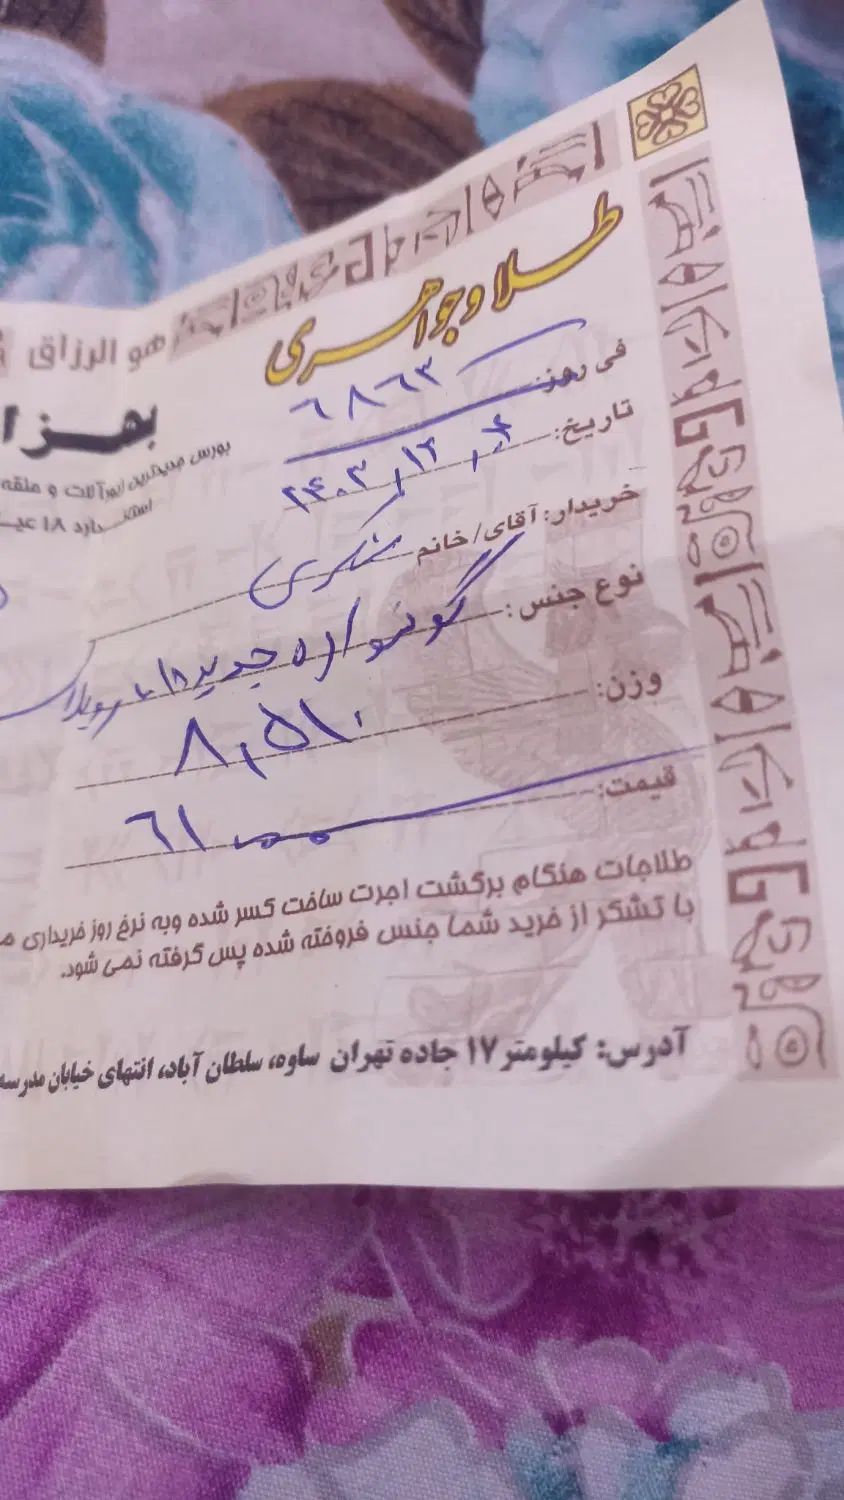 هو الرزاق
طلا و جواهری
بهزا
بورس جدیدترین زیورآلات و
استاندارد ۱۸ عیـ
فی روز: ۶۸۶۳
تاریخ:
خریدار: آقای/خانم
نوع جنس: گوشواره جدید
وزن: ۸,۵۱۰
قیمت: ۶۱
طلاجات هنگام برگشت اجرت ساخت کسر شده وبه نرخ روز خریداری
با تشکر از خرید شما جنس فروخته شده پس گرفته نمی شود.
آدرس: کیلومتر ۱۷ جاده تهران ساوه، سلطان آباد، انتهای خیابان مدرسه